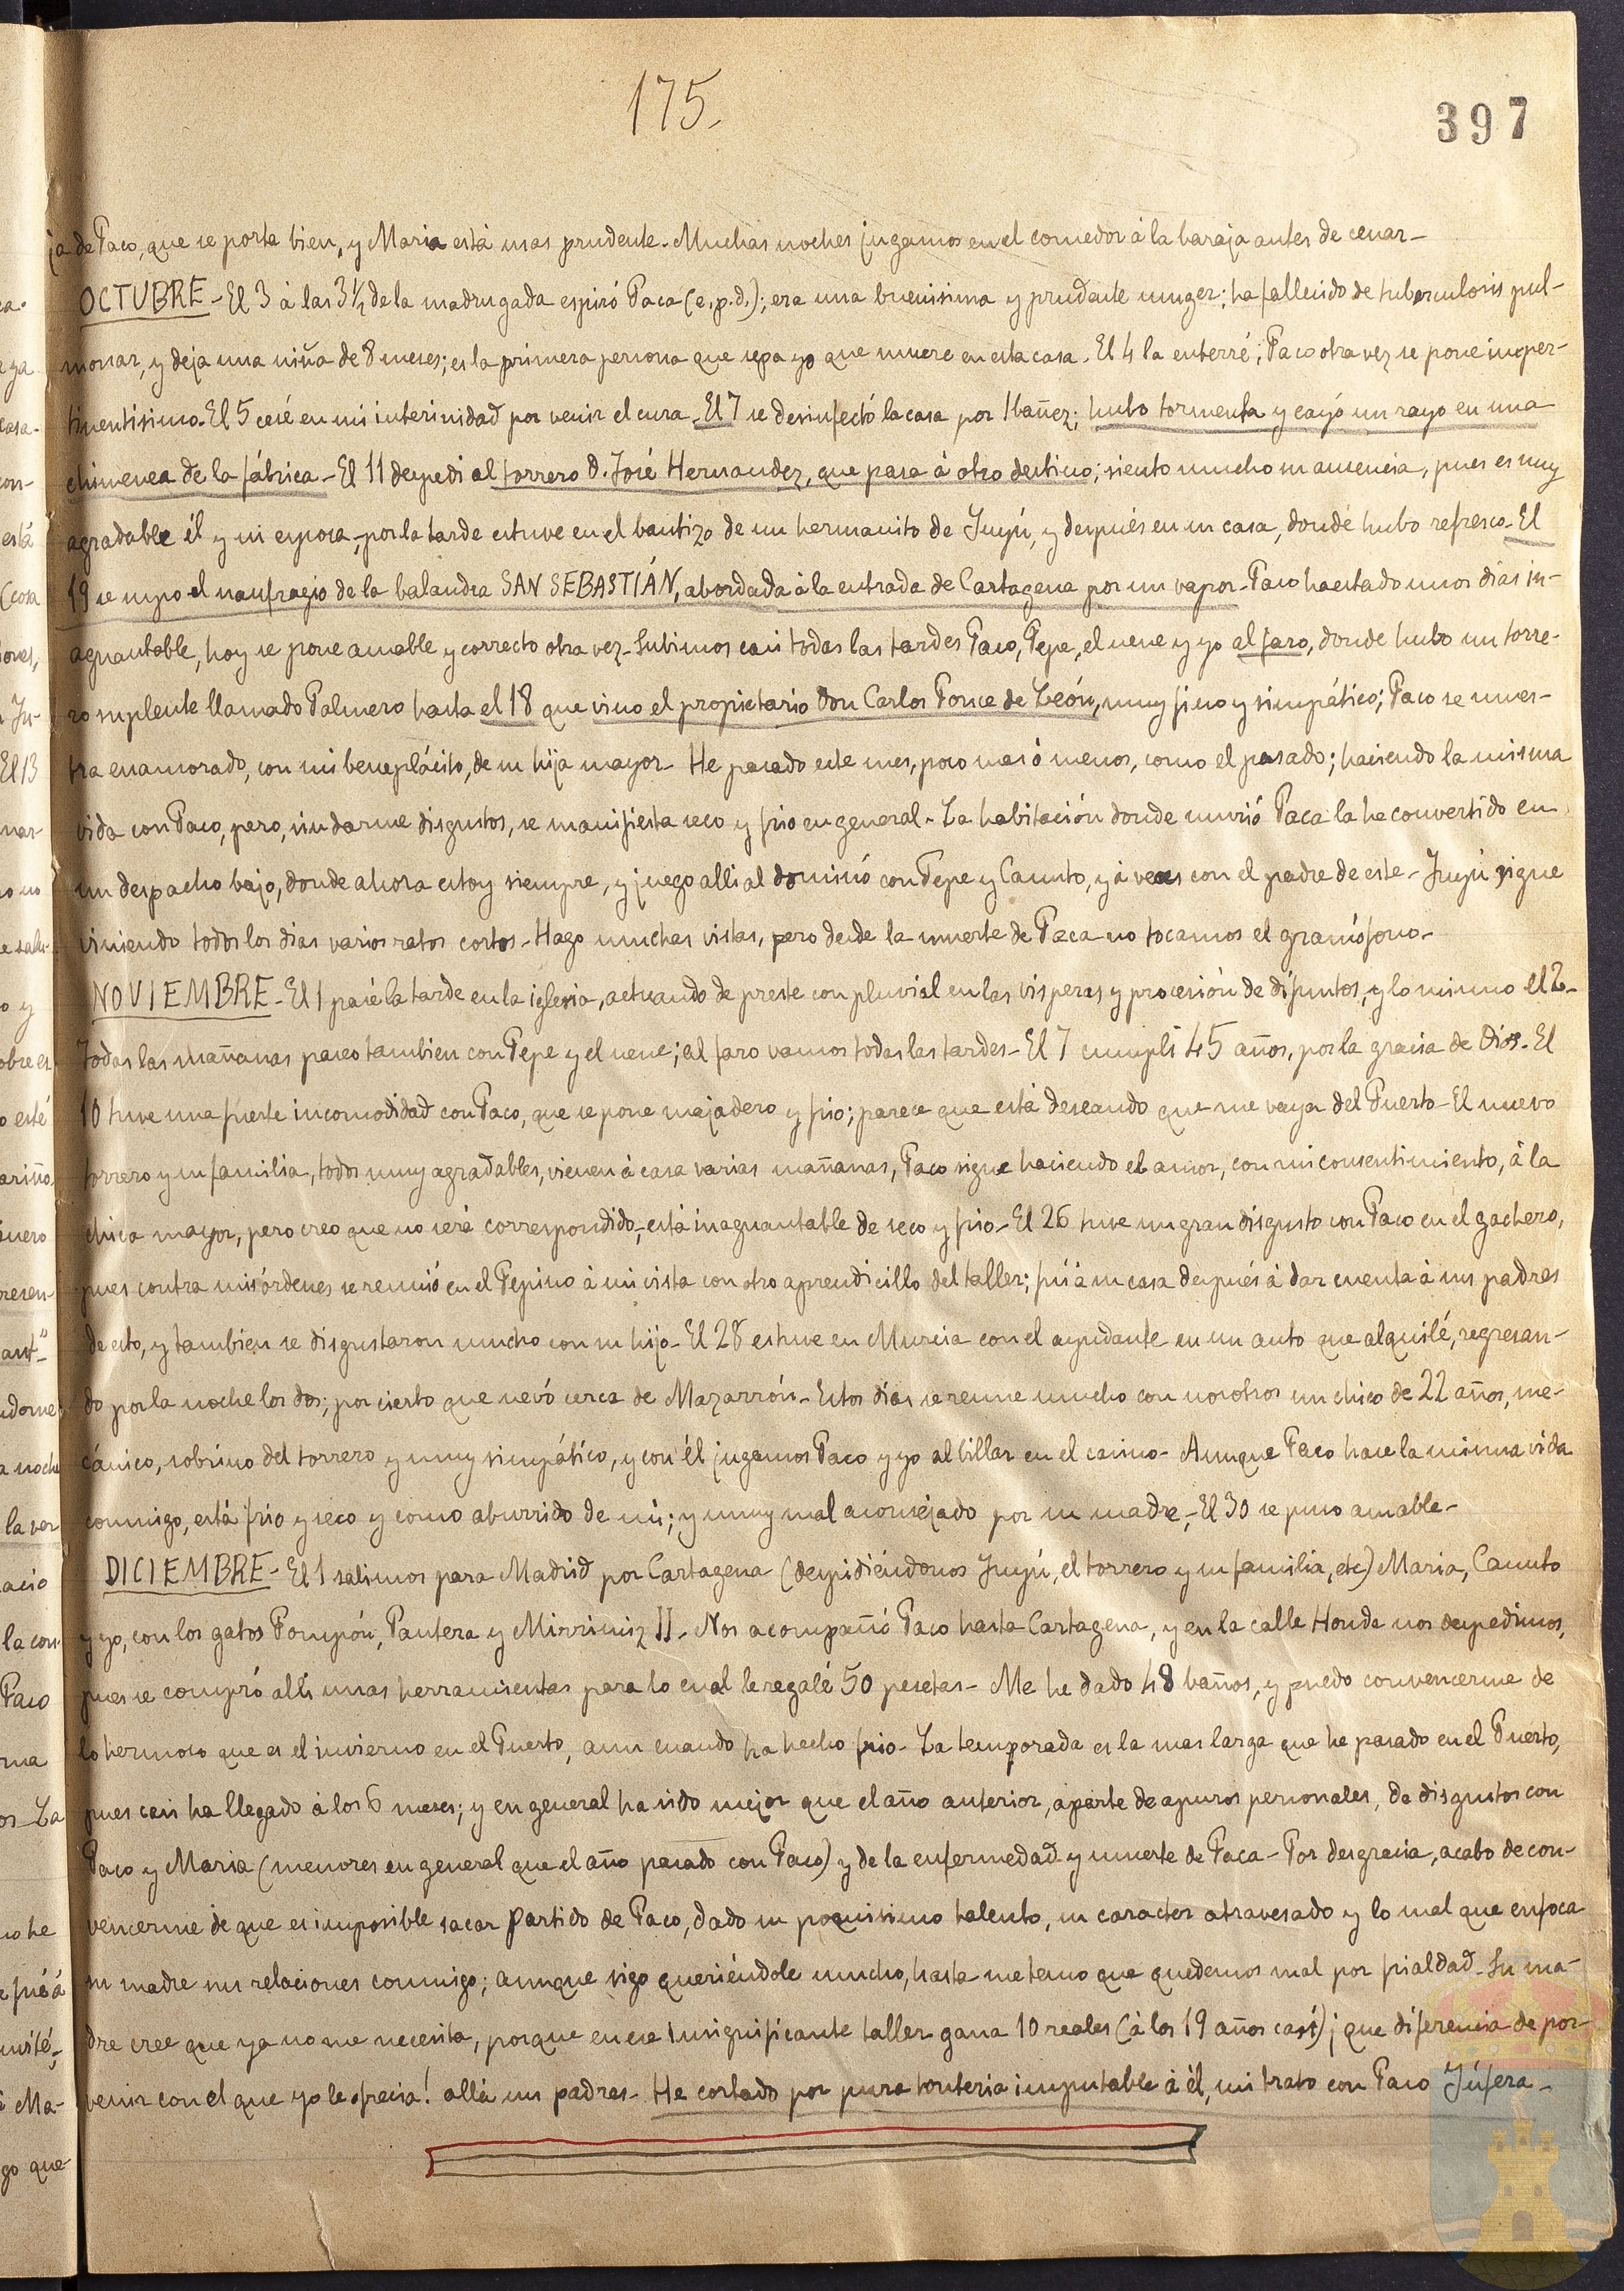 175.
397
ja de Paco, que se porta bien, y Maria está mas prudente.- Muchas noches jugamos en el comedor á la baraja antes de cenar-
OCTUBRE- El 3 á las 3½ de la madrugada espiró Paca (e.p.d.); era una buenisima y prudente muger; ha fallecido de tuberculosis pul-
monar, y deja una niña de 8 meses; es la primera persona que sepa yo que muere en esta casa- El 4 la enterré; Paco otra vez se pone imper-
tinentisimo- El 5 cesé en mi interinidad por venir el cura- El 7 se desinfectó la casa por Ibañez; hubo tormenta y cayó un rayo en una
chimenea de la fábrica- El 11 despedi al torrero D. José Hernandez, que pasa á otro destino; siento mucho su ausencia, pues es muy
agradable él y su esposa,-por la tarde estuve en el bautizo de un hermanito de Juyú, y después en su casa, donde hubo refresco- El
19 se supo el naufragio de la balandra SAN SEBASTIÁN, abordada á la entrada de Cartagena por un vapor- Paco ha estado unos dias in-
aguantable, hoy se pone amable y correcto otra vez- Subimos casi todas las tardes Paco, Pepe, el nene y yo al faro, donde hubo un torre-
ro suplente llamado Palmero hasta el 18 que vino el propietario Don Carlos Ponce de León, muy fino y simpático; Paco se mues-
tra enamorado, con mi beneplácito, de su hija mayor- He pasado este mes, poco mas ó menos, como el pasado; haciendo la misma
vida con Paco, pero, sin darme disgustos, se manifiesta seco y frio en general- La habitación donde murió Paca la he convertido en
un despacho bajo, donde ahora estoy siempre, y juego alli al dominó con Pepe y Canuto, y á veces con el padre de este- Juyú sigue
viniendo todos los dias varios ratos cortos- Hago muchas visitas, pero desde la muerte de Paca no tocamos el gramófono-
NOVIEMBRE- El 1 pasé la tarde en la iglesia, actuando de preste con pluvial en las visperas y procesión de difuntos, y lo mismo el 2-
Todas las mañanas paseo tambien con Pepe y el nene; al faro vamos todas las tardes- El 7 cumpli 45 años, por la gracia de Dios- El
10 tuve una fuerte incomodidad con Paco, que se pone majadero y frio; parece que está deseando que me vaya del Puerto- El nuevo
torrero y su familia, todos muy agradables, vienen á casa varias mañanas, Paco sigue haciendo el amor, con mi consentimiento, á la
chica mayor, pero creo que no será correspondido,-está inaguantable de seco y frio- El 26 tuve un gran disgusto con Paco en el gachero,
pues contra mis órdenes se reunió en el Pepino á mi vista con otro aprendicillo del taller; fui á su casa después á dar cuenta á sus padres
de esto, y tambien se disgustaron mucho con su hijo- El 28 estuve en Murcia con el ayudante en un auto que alquilé, regresan-
do por la noche los dos; por cierto que nevó cerca de Mazarrón- Estos dias se reune mucho con nosotros un chico de 22 años, me-
cánico, sobrino del torrero y muy simpático, y con él jugamos Paco y yo al billar en el casino- Aunque Paco hace la misma vida
conmigo, está frio y seco y como aburrido de mi; y muy mal aconsejado por su madre,- El 30 se puso amable-
DICIEMBRE- El 1 salimos para Madrid por Cartagena (despidiéndonos Juyú, el torrero y su familia, etc) Maria, Canuto
y yo, con los gatos Pompón, Pantera y Mirrimiz II- Nos acompañó Paco hasta Cartagena, y en la calle Honda nos despedimos,
pues se compró alli unas herramientas para lo cual le regalé 50 pesetas- Me he dado 48 baños, y puedo convencerme de
lo hermoso que es el invierno en el Puerto, aun cuando ha hecho frio- La temporada es la mas larga que he pasado en el Puerto,
pues casi ha llegado á los 6 meses; y en general ha sido mejor que el año anterior, aparte de apuros personales, de disgustos con
Paco y Maria (menores en general que el año pasado con Paco) y de la enfermedad y muerte de Paca- Por desgracia, acabo de con-
vencerme de que es imposible sacar partido de Paco, dado su poquisimo talento, su caracter atravesado y lo mal que enfoca
su madre sus relaciones conmigo; aunque sigo queriéndole mucho, hasta me temo que quedemos mal por frialdad- Su ma-
dre cree que ya no me necesita, porque en ese insignificante taller gana 10 reales (á los 19 años casi) ¡que diferencia de por-
venir con el que yo le ofrecia! allá sus padres- He cortado por pura tonteria imputable á él, mi trato con Paco Júfera-